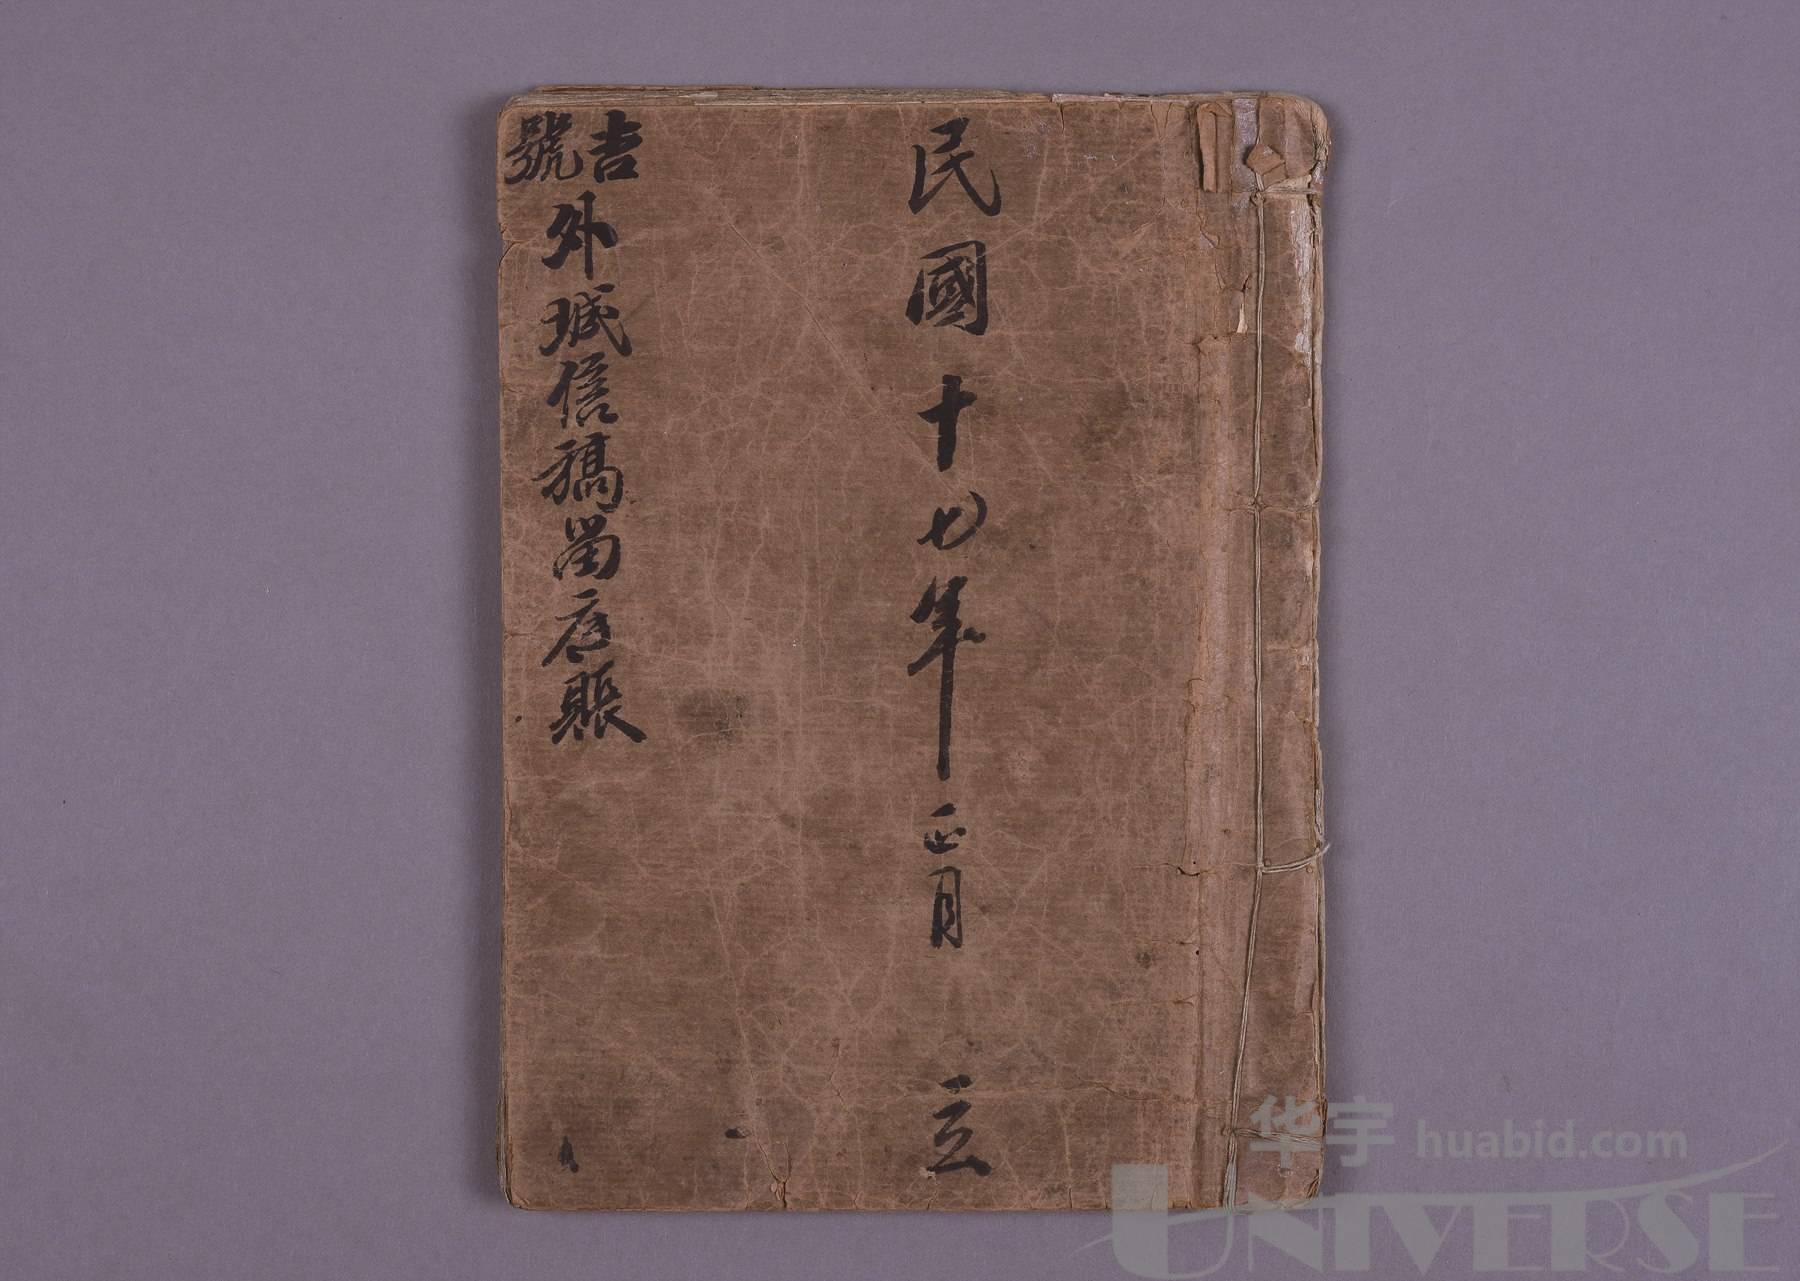 民國十七年正月 立
吉號外城信稿畱底賬
华宇 huabid.com
UNIVERSE